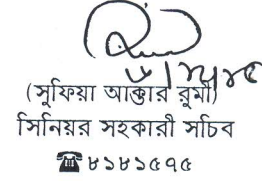 (সুফিয়া আক্তার রুমী)
সিনিয়র সহকারী সচিব
☎৮১৮১৫৭৫